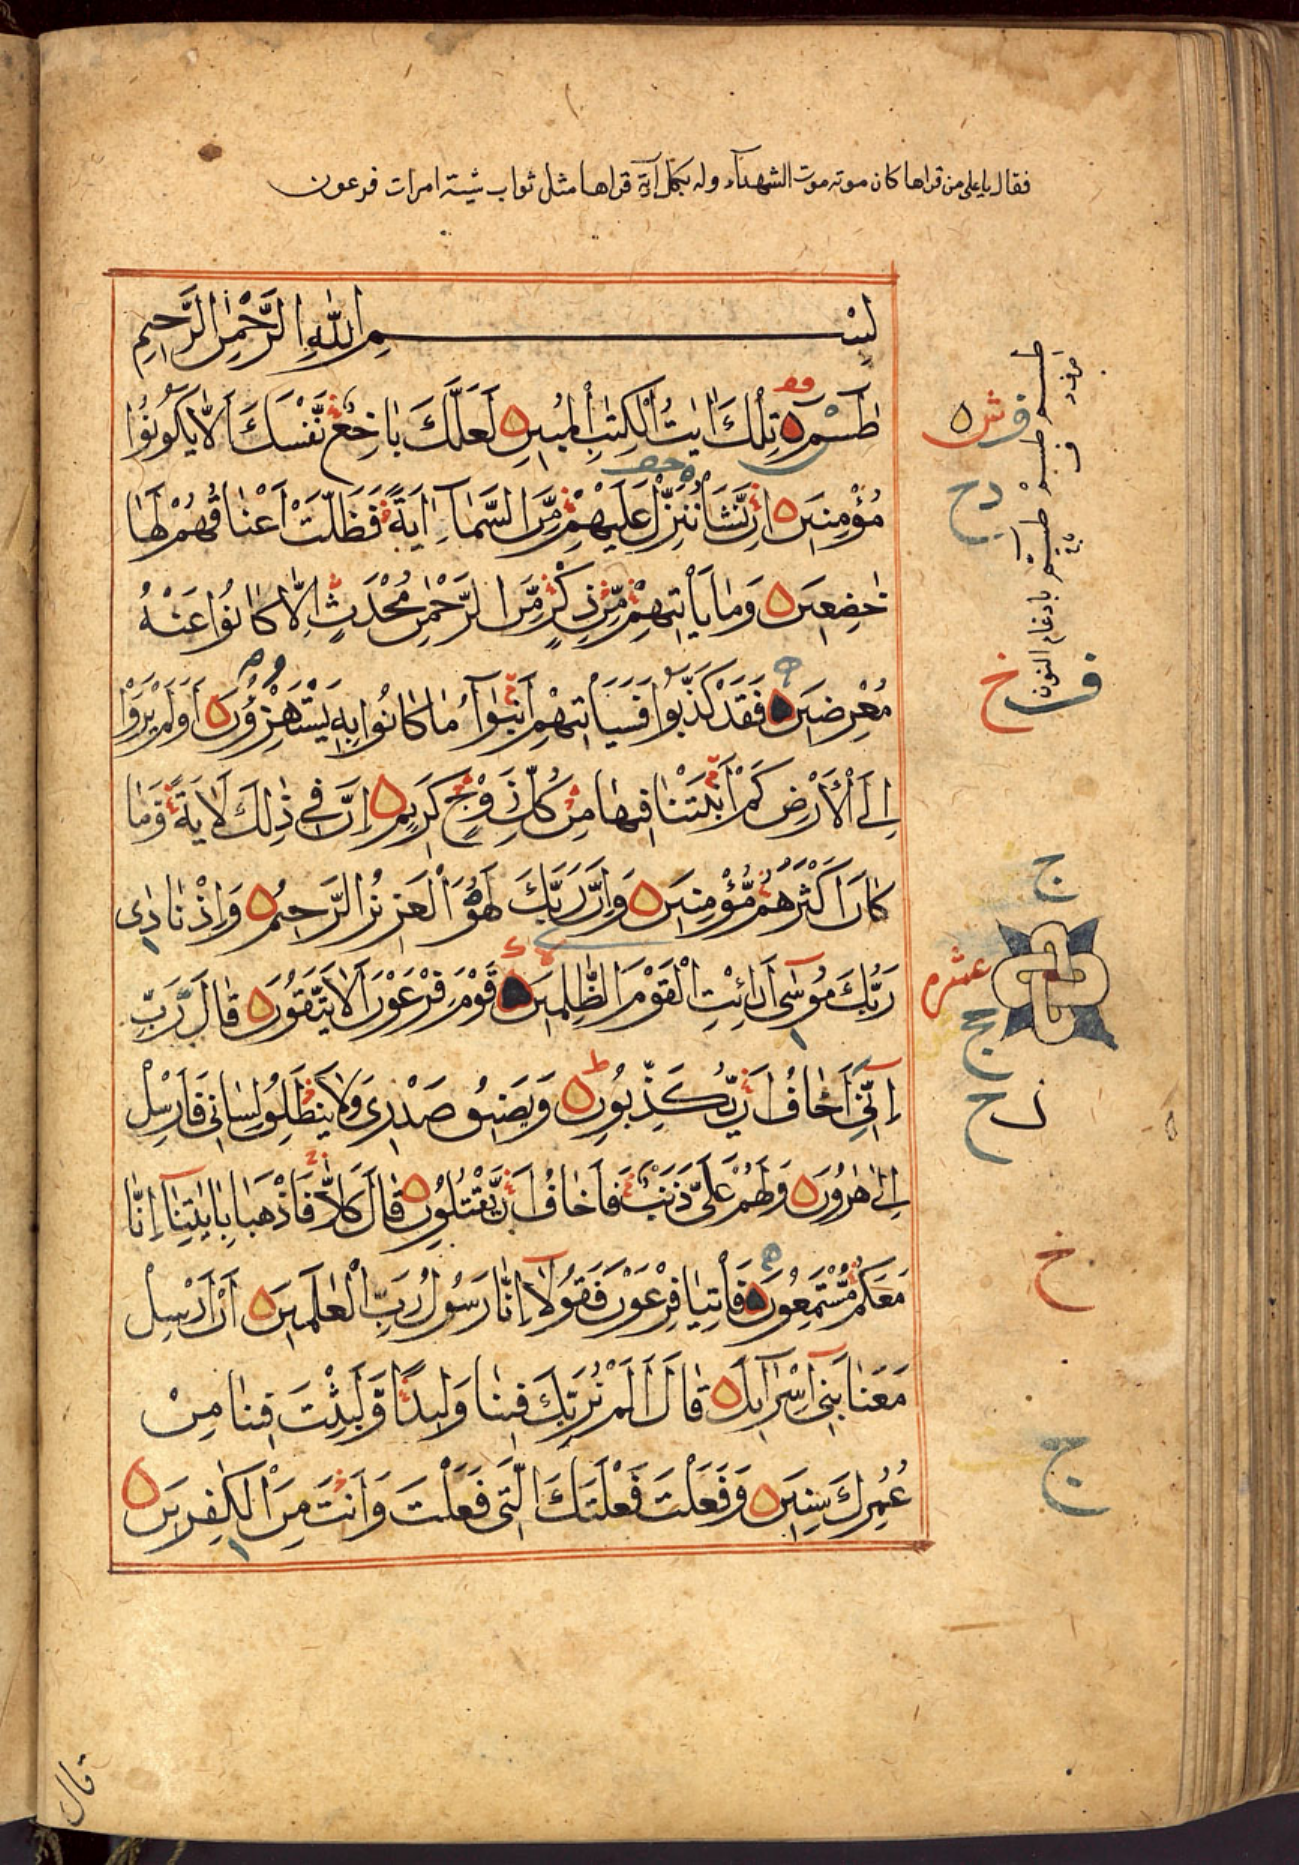 فقال يا على من قراها كان موته موت الشهدآء وله بكل آية قراها مثل ثواب آسية امرات فرعون
بِسْمِ اللّٰهِ الرَّحْمٰنِ الرَّحِيمِ
طٰسٓمٓ تِلْكَ اٰيٰتُ الْكِتٰبِ الْمُبِينِ لَعَلَّكَ بَاخِعٌ نَّفْسَكَ اَلَّا يَكُونُوا
مُؤْمِنِينَ اِنْ نَّشَأْ نُنَزِّلْ عَلَيْهِمْ مِّنَ السَّمَآءِ اٰيَةً فَظَلَّتْ اَعْنَاقُهُمْ لَهَا
خٰضِعِينَ وَمَا يَأْتِيهِمْ مِّنْ ذِكْرٍ مِّنَ الرَّحْمٰنِ مُحْدَثٍ اِلَّا كَانُوا عَنْهُ
مُعْرِضِينَ فَقَدْ كَذَّبُوا فَسَيَأْتِيهِمْ اَنْبٰٓؤُا مَا كَانُوا بِهِ يَسْتَهْزِؤُنَ اَوَلَمْ يَرَوْا
اِلَى الْاَرْضِ كَمْ اَنْبَتْنَا فِيهَا مِنْ كُلِّ زَوْجٍ كَرِيمٍ اِنَّ فِي ذٰلِكَ لَاٰيَةً وَّمَا
كَانَ اَكْثَرُهُمْ مُّؤْمِنِينَ وَاِنَّ رَبَّكَ لَهُوَ الْعَزِيزُ الرَّحِيمُ وَاِذْ نَادٰى
رَبُّكَ مُوسٰٓى اَنِ ائْتِ الْقَوْمَ الظّٰلِمِينَ قَوْمَ فِرْعَوْنَ اَلَا يَتَّقُونَ قَالَ رَبِّ
اِنِّيٓ اَخَافُ اَنْ يُّكَذِّبُونِ وَيَضِيقُ صَدْرِى وَلَا يَنْطَلِقُ لِسَانِى فَاَرْسِلْ
اِلٰى هٰرُونَ وَلَهُمْ عَلَىَّ ذَنْبٌ فَاَخَافُ اَنْ يَّقْتُلُونِ قَالَ كَلَّا فَاذْهَبَا بِاٰيٰتِنَآ اِنَّا
مَعَكُمْ مُّسْتَمِعُونَ فَأْتِيَا فِرْعَوْنَ فَقُولَآ اِنَّا رَسُولُ رَبِّ الْعٰلَمِينَ اَنْ اَرْسِلْ
مَعَنَا بَنِيٓ اِسْرَآئِيلَ قَالَ اَلَمْ نُرَبِّكَ فِينَا وَلِيدًا وَّلَبِثْتَ فِينَا مِنْ
عُمُرِكَ سِنِينَ وَفَعَلْتَ فَعْلَتَكَ الَّتِى فَعَلْتَ وَاَنْتَ مِنَ الْكٰفِرِينَ
عشره
قال